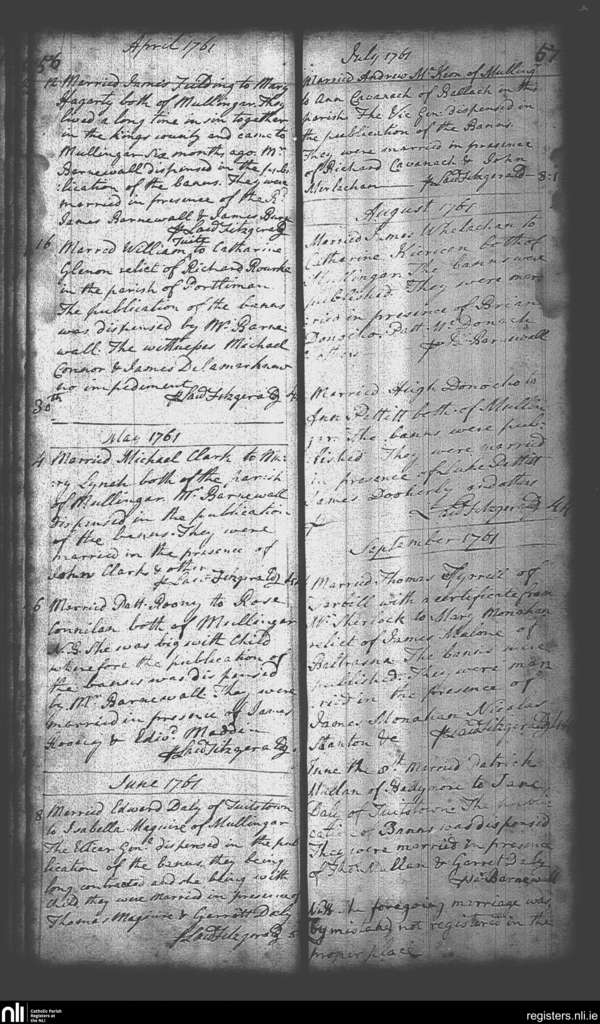 56
April 1761
12 Married James Feilding to Mary
Hagarty both of Mullingar. They
lived a long time in sin together
in the kings county and came to
Mullingar six months ago. Mr
Barnewall dispensed in the pub-
lication of the banns. They were
married in presence of the Rd
James Barnewall & James
Laud Fitzgerald
16 Married William Tuite to Catharine
Glenon relict of Richard Rourke
in the parish of Portliman
The publication of the banns
was dispensed by Mr Barne-
wall. The wittnesses Michael
Connor & James Delamar know
no impediment
Laud Fitzgerald
30th
May 1761
4 Married Michael Clark to Ma-
ry Lynch both of the parish
of Mullingar. Mr Barnewall
dispensed in the publication
of the banns. They were
married in the presence of
John Clark & other
Laud Fitzgerald
6 Married Patt Roony to Rose
Connilan both of Mullingar
N.B. She was big with Child
wherefore the publication of
the banns was dispensed
by Mr Barnewall They were
married in presence of James
& Edwd Madden
Laud Fitzgerald
June 1761
8 Married Edward Daly of Tuitstown
to Isabella Maguire of Mullingar
The Vicar Genl dispensed in the pub
lication of the banns they being
long contracted and she being with
child they were married in presence of
Thomas Maguire & Garrett Daly
Laud Fitzgerald
57
July 1761
Married Andrew McKeon of Mulling
to Ann Cavanach of Ballach in this
parish. The Vic Gen dispensed in
the publication of the Banns
They were married in presence
of Richard Cavanach & John
Laud Fitzgerald
August 1761
Married James Whelachan to
Catharine Kierwan both of
Mullingar The banns were
published They were mar-
ried in presence of Brian
Donocho Patt McDonach
& others
Barnewall
Married Hugh Donocho to
Ann Pettitt both of Mullin
gar. The banns were pub-
lished They were married
in presence of Luke Pettitt
James Dooherly & others
Laud Fitzgerald
September 1761
Married Thomas Tyrrell of
with a certificate from
Mr Sherlock to Mary Monahan
relict of James Malone of
Baltrasna. The banns were
published. They were mar
ried in the presence of
James Monahan Nicolas
Stanton &c Laud Fitzgerald
June the 8th Married Patrick
Mullan of Hadymore to Jane
Daly of Tuitstown The publi
cation of Banns was dispensed
They were married in presence
of Thos Mullan & Garret Daly
Barnewall
Note the foregoing marriage was
by mistake not registered in the
proper place
nli
Catholic Parish
Registers at
the NLI
registers.nli.ie